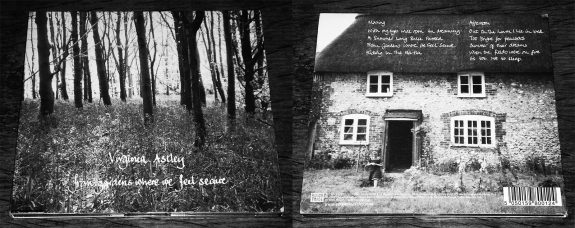 Virginia Astley
from gardens where we feel secure
Morning
With my eyes wide open I'm dreaming
A Summer long Since Passed
From Gardens Where We Feel Secure
Hiding in the ha-ha
Afternoon
Out on the lawn I lie in bed
Too bright for peacocks
Summer of their dreams
When the fields were on fire
It's too hot to sleep